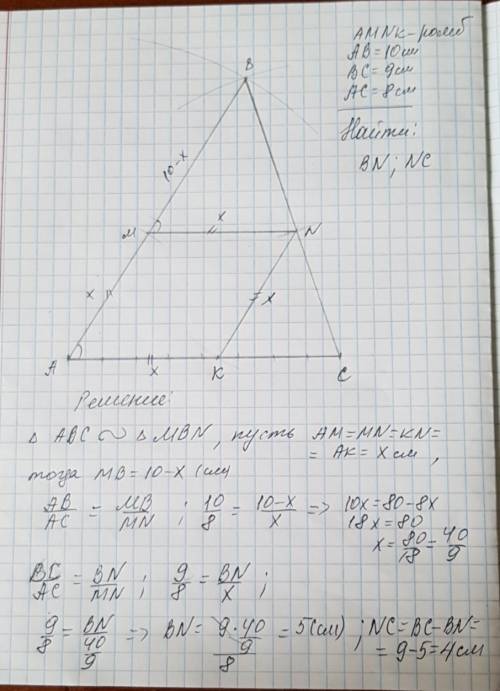 AMNK-ромб
AB=10см
BC=9см
AC=8см
Найти:
BN; NC
B
10-x
M
x
N
x
x
A
x
K
C
Решение:
△ ABC ∾ △ MBN, пусть AM=MN=KN=
= AK= x см,
тогда MB=10-x (см)
AB/AC = MB/MN ; 10/8 = 10-x/x => 10x=80-8x
18x=80
x=80/18=40/9
BC/AC = BN/MN ; 9/8 = BN/x ;
9/8 = BN/40/9 => BN= 9·40/9/8 = 5(см) ; NC=BC-BN=
= 9-5=4см